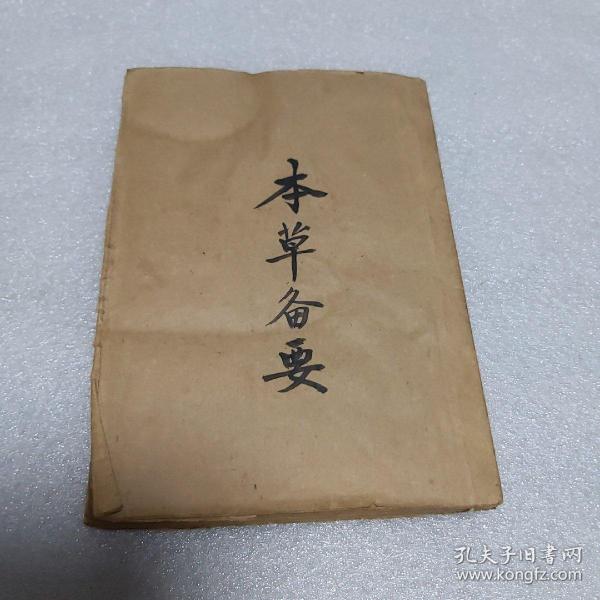 本草备要
孔夫子旧书网
www.kongfz.com